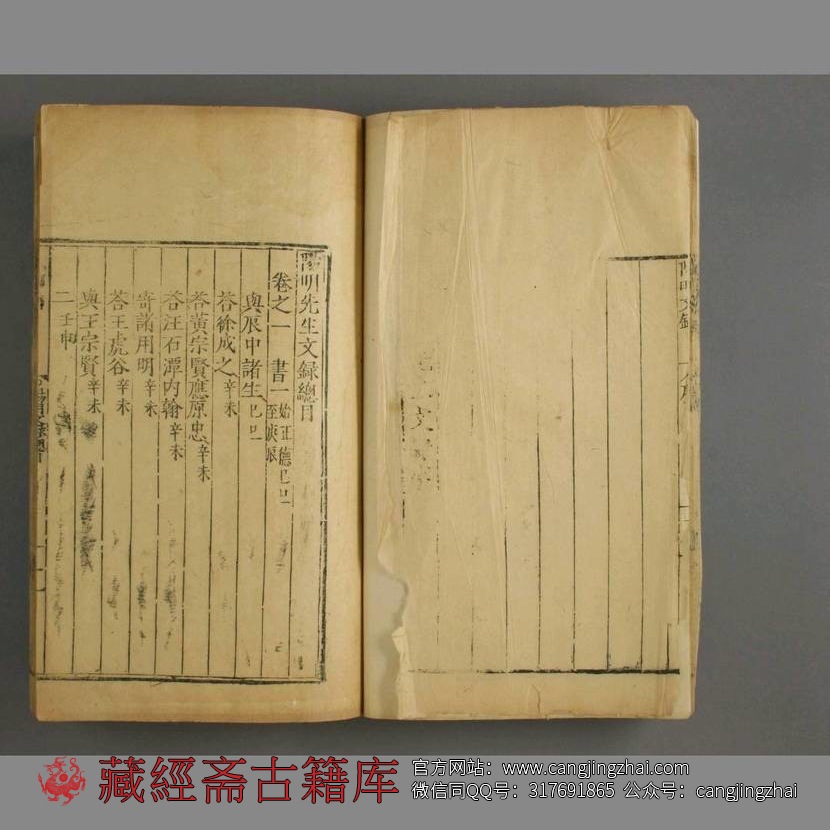 陽明先生文録總目
卷之一　書一 始正德己巳至庚辰
與辰中諸生 己巳
答徐成之 辛未
答黄宗賢應原忠 辛未
答汪石潭内翰 辛未
寄諸用明 辛未
答王虎谷 辛未
與王宗賢 辛未
二 壬申
藏經斋古籍库
官方网站：www.cangjingzhai.com
微信同QQ号：317691865 公众号：cangjingzhai